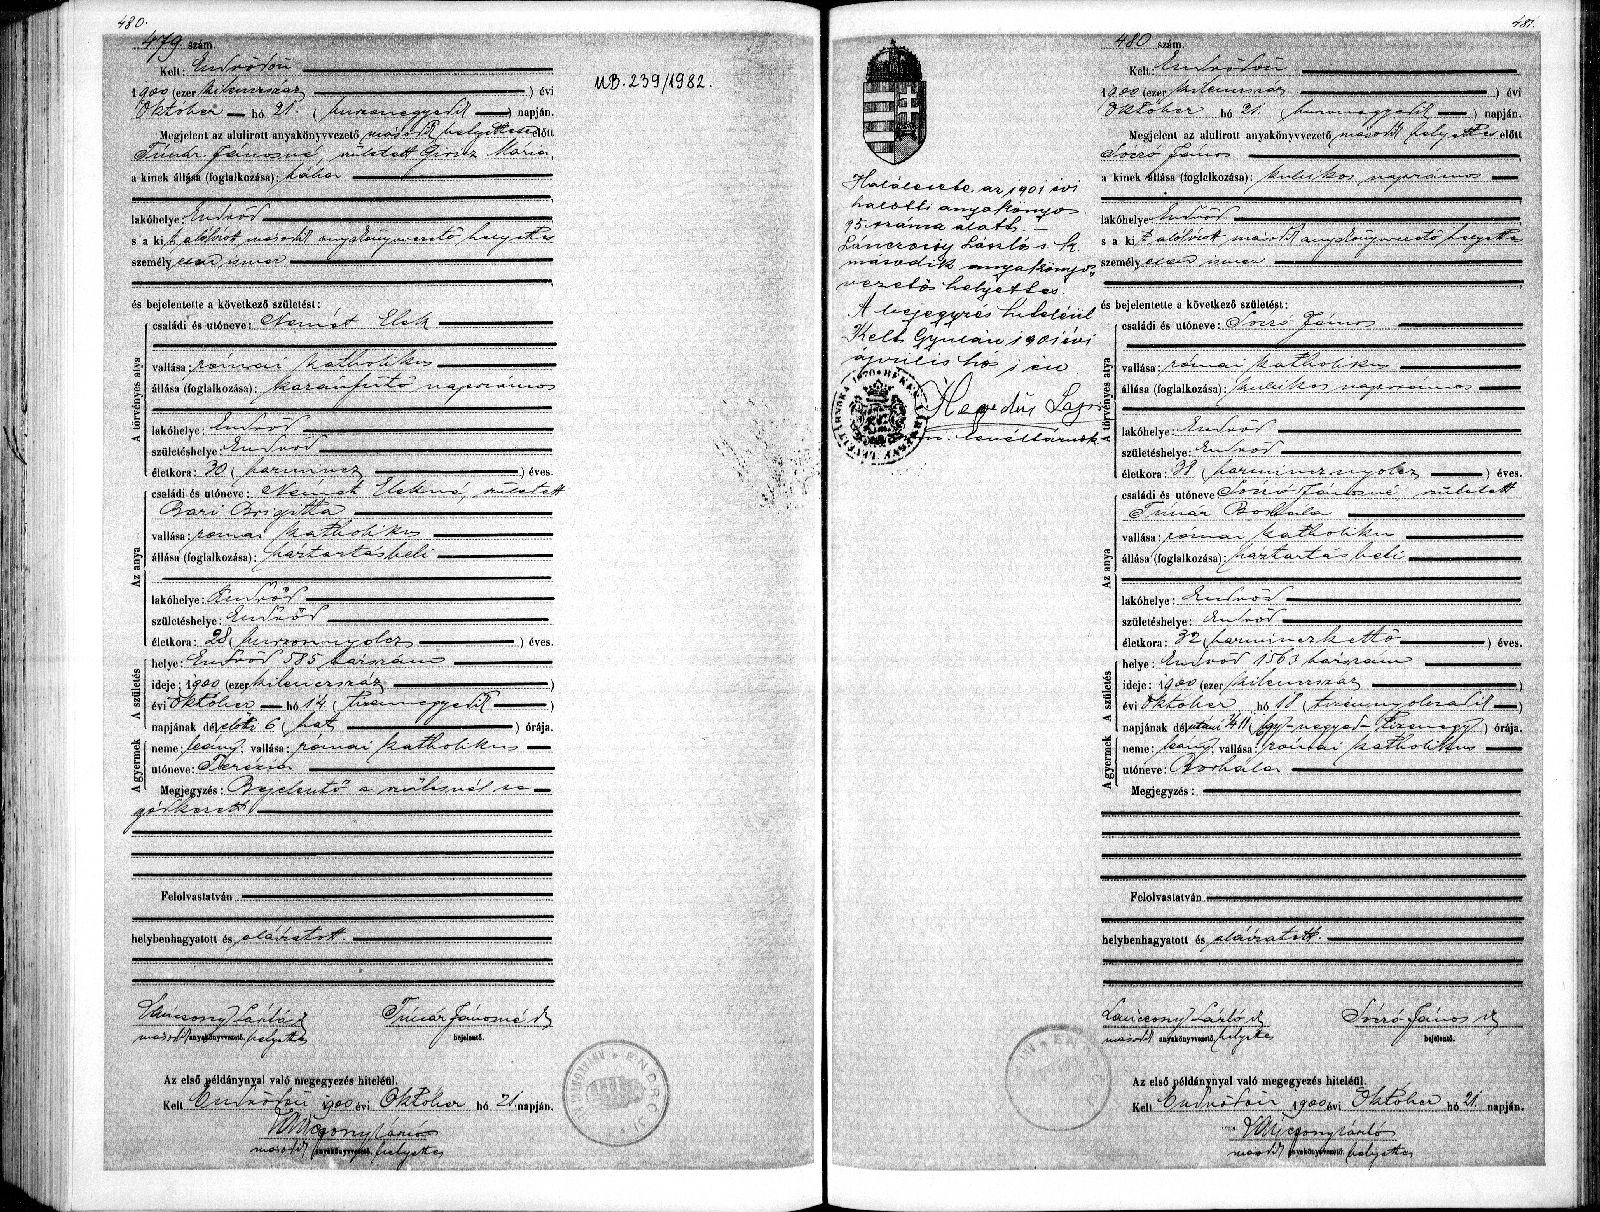 480.
479 szám
Kelt: Endrődön
1900 (ezer kilencszáz) évi
Október hó 21. (huszonegyedik) napján.
Megjelent az alulirott anyakönyvvezető második helyettese előtt
Tímár Jánosné, született Giricz Mária,
a kinek állása (foglalkozása): bába
lakóhelye: Endrőd
s a kit alólirott második anyakönyvvezető helyettes
személyesen ismer
és bejelentette a következő születést:
A törvényes atya
családi és utóneve: Német Elek
vallása: római katholikus
állása (foglalkozása): kazánfütő napszámos
lakóhelye: Endrőd
születéshelye: Endrőd
életkora: 30 (harmincz) éves.
Az anya
családi és utóneve: Német Elekné, született
Bari Brigitta
vallása: római katholikus
állása (foglalkozása): háztartásbeli
lakóhelye: Endrőd
születéshelye: Endrőd
életkora: 28 (huszonnyolcz) éves.
A születés
helye: Endrőd 585 házszám
ideje: 1900 (ezer kilencszáz)
évi október hó 14 (tizennegyedik)
napjának délelőtti 6 (hat) órája.
A gyermek
neme: leány, vallása: római katholikus
utóneve: Terézia
Megjegyzés: Bejelentő a szülésnél se
gédkezett
Felolvastatván
helybenhagyatott és aláíratott.
Tímár Jánosné
második anyakönyvvezető helyettes
bejelentő.
Az első példánynyal való megegyezés hiteléül.
Kelt Endrődön 1900 évi Október hó 21. napján.
második anyakönyvvezető helyettes
UB. 239/1982.
481.
Halálesete az 1901 évi
halotti anyakönyv
95. száma alatt. –
László s. k.
második anyakönyv
vezetős helyettes
A bejegyzés hiteléül
Kelt Gyulán 1901 évi
április hó 1 én
Hegedűs Lajos
480 szám.
Kelt: Endrődön
1900 (ezer kilencszáz) évi
Október hó 21. (huszonegyedik) napján.
Megjelent az alulirott anyakönyvvezető második helyettes előtt
Szró János
a kinek állása (foglalkozása): kubikos napszámos
lakóhelye: Endrőd
s a kit alólirott második anyakönyvvezető helyettes
személyesen ismer
és bejelentette a következő születést:
A törvényes atya
családi és utóneve: Szró János
vallása: római katholikus
állása (foglalkozása): kubikos napszámos
lakóhelye: Endrőd
születéshelye: Endrőd
életkora: 38 (harmincznyolcz) éves.
Az anya
családi és utóneve: Szró Jánosné született
Tímár Borbála
vallása: római katholikus
állása (foglalkozása): háztartásbeli
lakóhelye: Endrőd
születéshelye: Endrőd
életkora: 32 (harminczkettő) éves.
A születés
helye: Endrőd 1563 házszám
ideje: 1900 (ezer kilencszáz)
évi október hó 18 (tizennyolczadik)
napjának délutáni 1/4 11 (egy negyed tizenegy) órája.
A gyermek
neme: leány, vallása: római katholikus
utóneve: Borbála
Megjegyzés:
Felolvastatván
helybenhagyatott és aláíratott.
Szró János
második anyakönyvvezető helyettes
bejelentő.
Az első példánynyal való megegyezés hiteléül.
Kelt Endrődön 1900 évi Október hó 21. napján.
második anyakönyvvezető helyettes